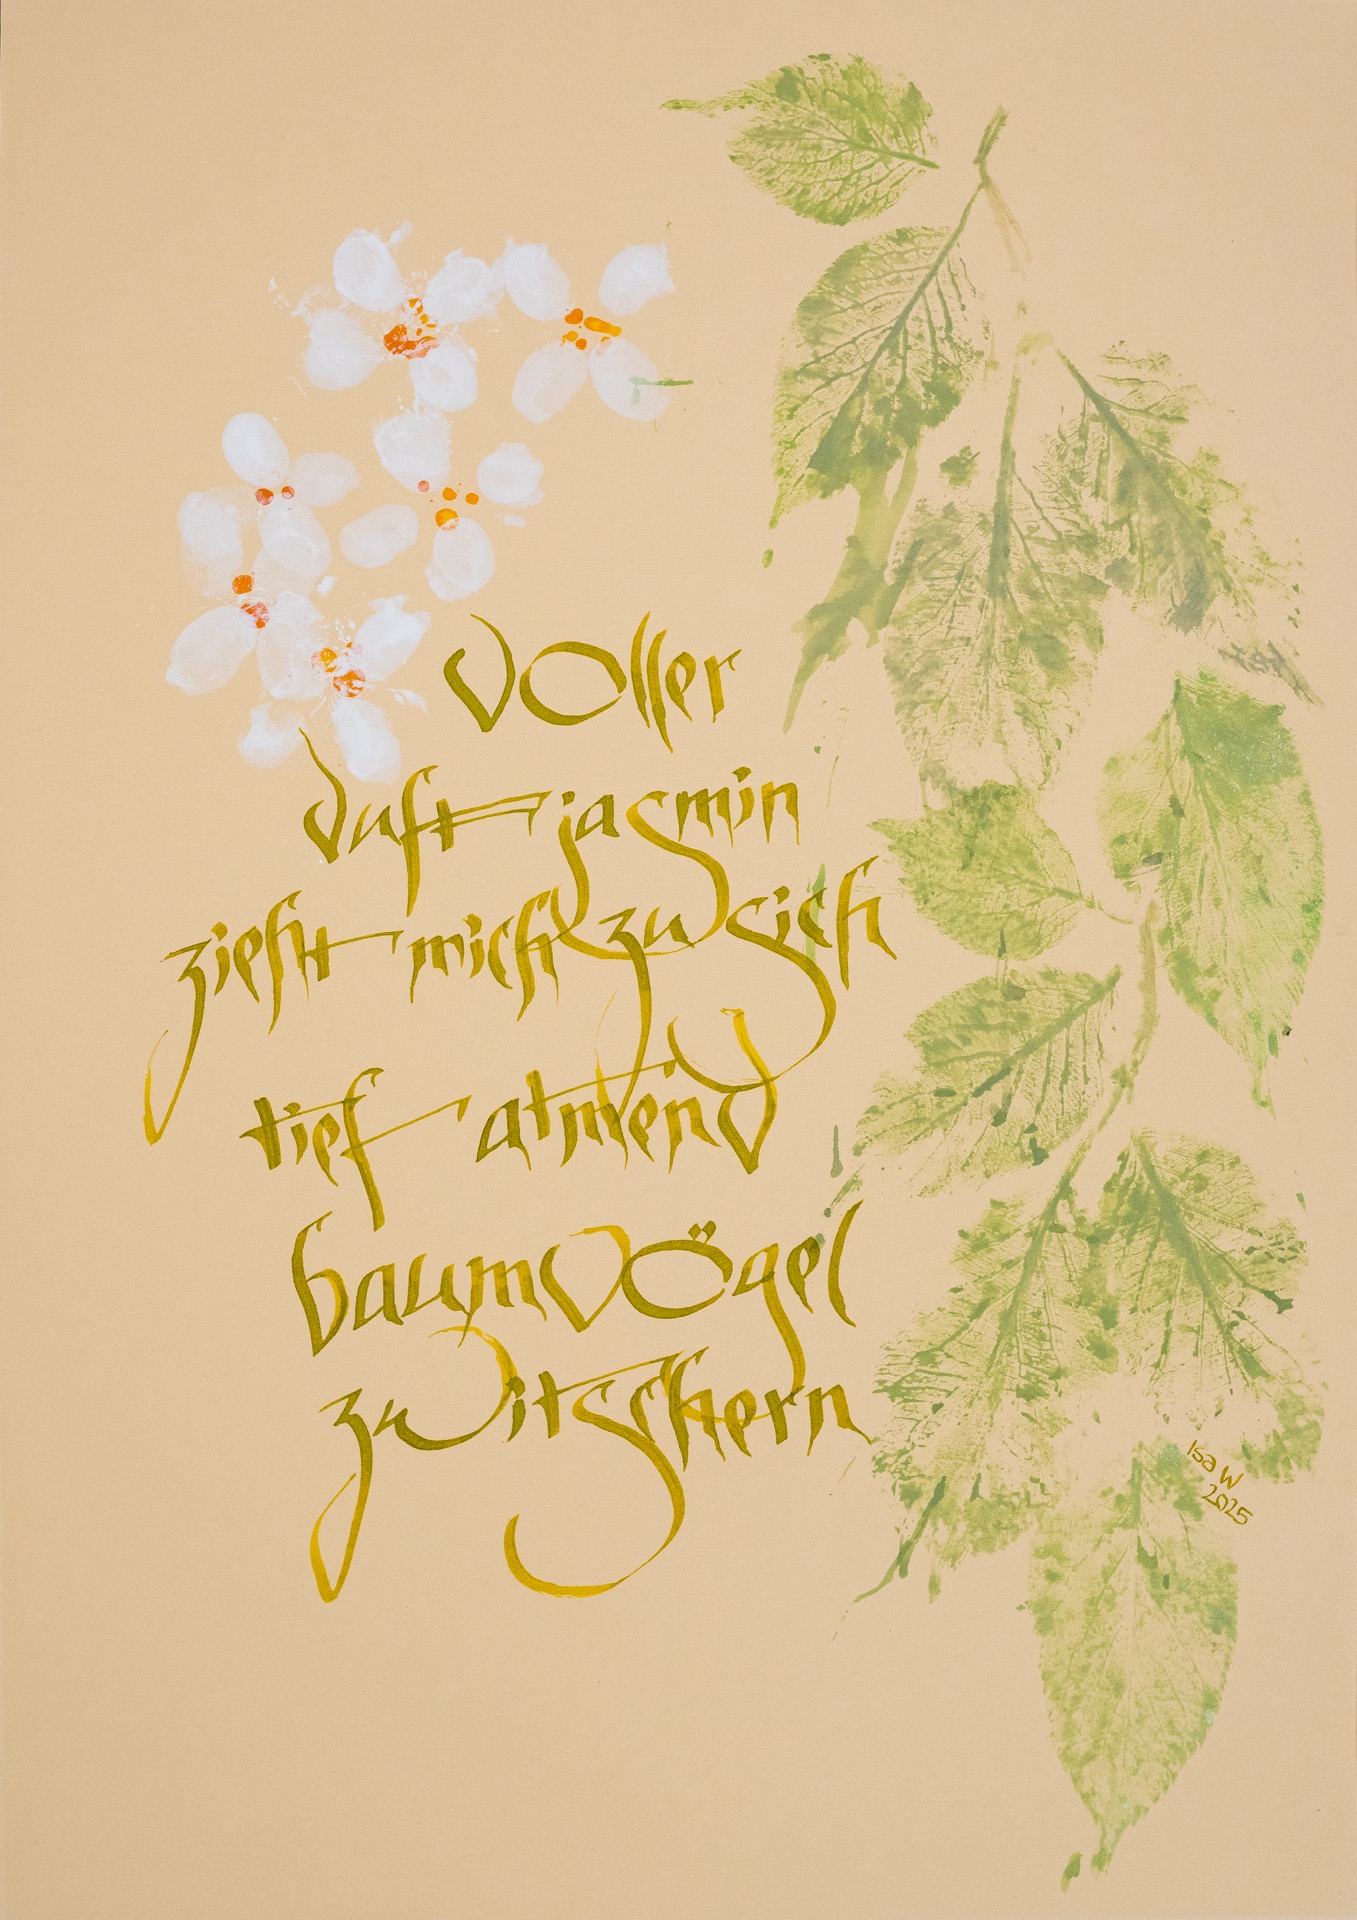 voller
duft jasmin
zieht mich zu sich
tief atmend
baumvögel
zwitschern
Isa W
2025